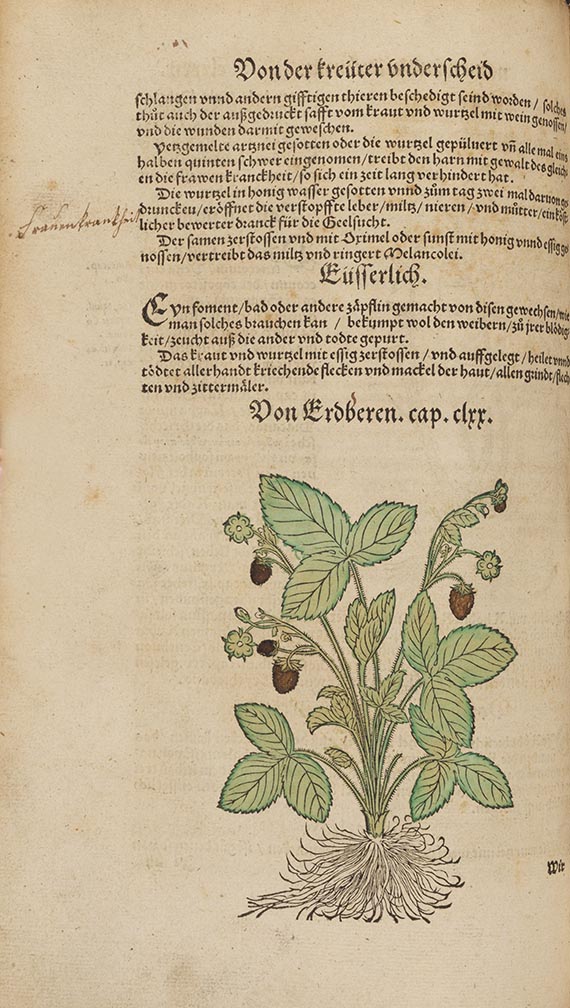 Von der kreüter vnderscheid
schlangen vnnd andern gifftigen thieren beschedigt seind worden / solches
thůt auch der außgedruckt safft vom kraut vnd wurtzel mit wein genossen /
vnd die wunden darmit geweschen.
Yetzgemelte artznei gesotten oder die wurtzel gepülnert vñ alle mal eins
halben quinten schwer eingenomen / treibt den harn mit gewalt des gleich
en die frawen kranckheit / so sich ein zeit lang verhindert hat.
Die wurtzel in honig wasser gesotten vnnd zům tag zwei mal daruon ge
druncken / eröffnet die verstopffte leber / miltz / nieren / vnd můtter / ein köst
licher bewerter dranck für die Geelsucht.
Frauenkrankheit
Der samen zerstossen vnd mit Oximel oder sunst mit honig vnnd essig ge
nossen / vertreibt das miltz vnd ringert Melancolei.
Eüsserlich.
Eyn foment / bad oder andere zäpflin gemacht von disen gewechsen / wie
man solches brauchen kan / bekumpt wol den weibern / zů jrer blödig
keit / zeucht auß die ander vnd todte gepurt.
Das kraut vnd wurtzel mit essig zerstossen / vnd auffgelegt / heilet vnnd
tödtet allerhandt kriechende flecken vnd mackel der haut / allen grindt / flech
ten vnd zittermäler.
Von Erdberen. cap. clxx.
Wir